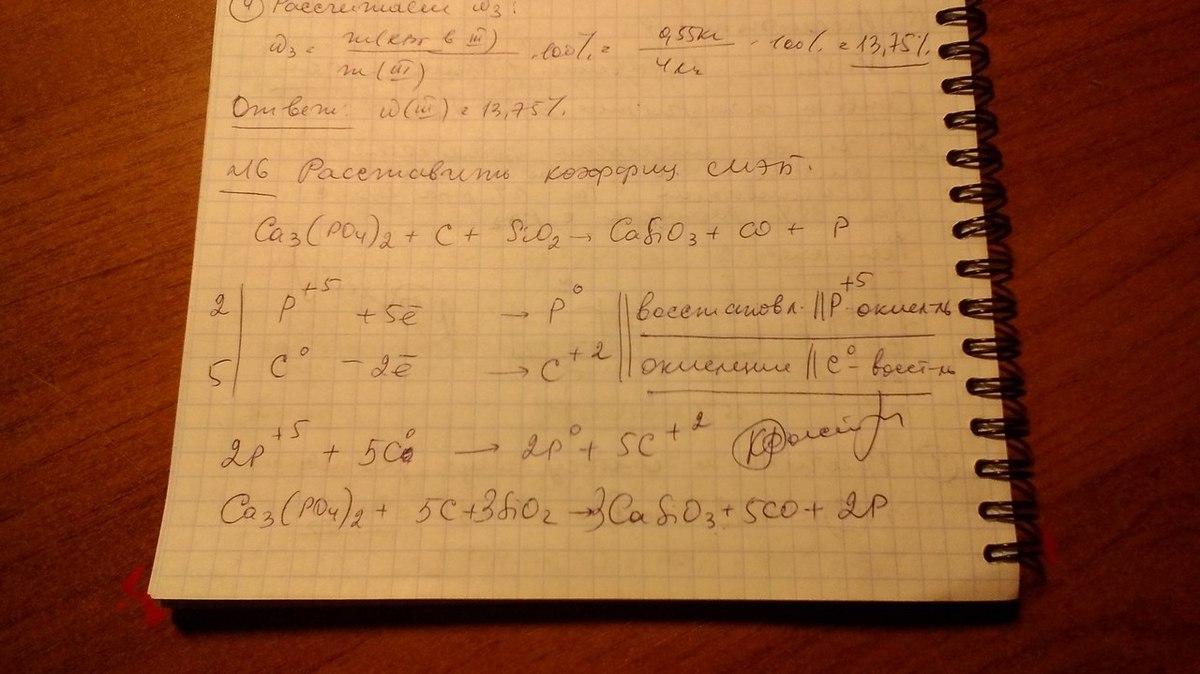 ④ Рассчитаем ω₃:
ω₃ = m(  в III) / m(III) · 100% = 0,55кг / 4кг · 100% = 13,75%
Ответ: ω(III) = 13,75%
№6 Расставить коэффиц МЭБ.
Ca₃(PO₄)₂ + C + SiO₂ → CaSiO₃ + CO + P
2 | P⁺⁵ + 5ē → P⁰ || восстановл. || P⁺⁵ окисл-ль
5 | C⁰ − 2ē → C⁺² || окисление || C⁰ – восст-ль
2P⁺⁵ + 5C⁰ → 2P⁰ + 5C⁺²
Ca₃(PO₄)₂ + 5C + 3SiO₂ → 3CaSiO₃ + 5CO + 2P